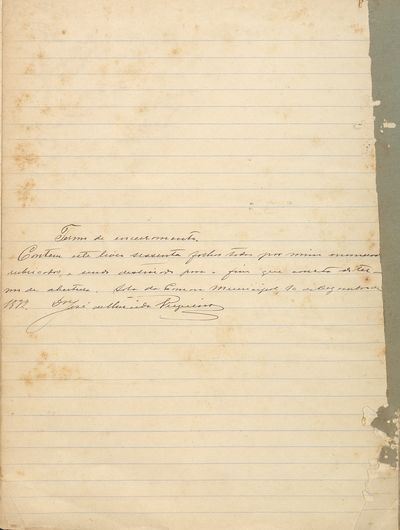 Termo de encerramento.
Contem este livro sessenta folhas todas por mim numeradas
rubricadas, e sendo destinado para o fim que consta do ter-
mo de abertura. Sala da Camara Municipal, de
1892 José de Almeida